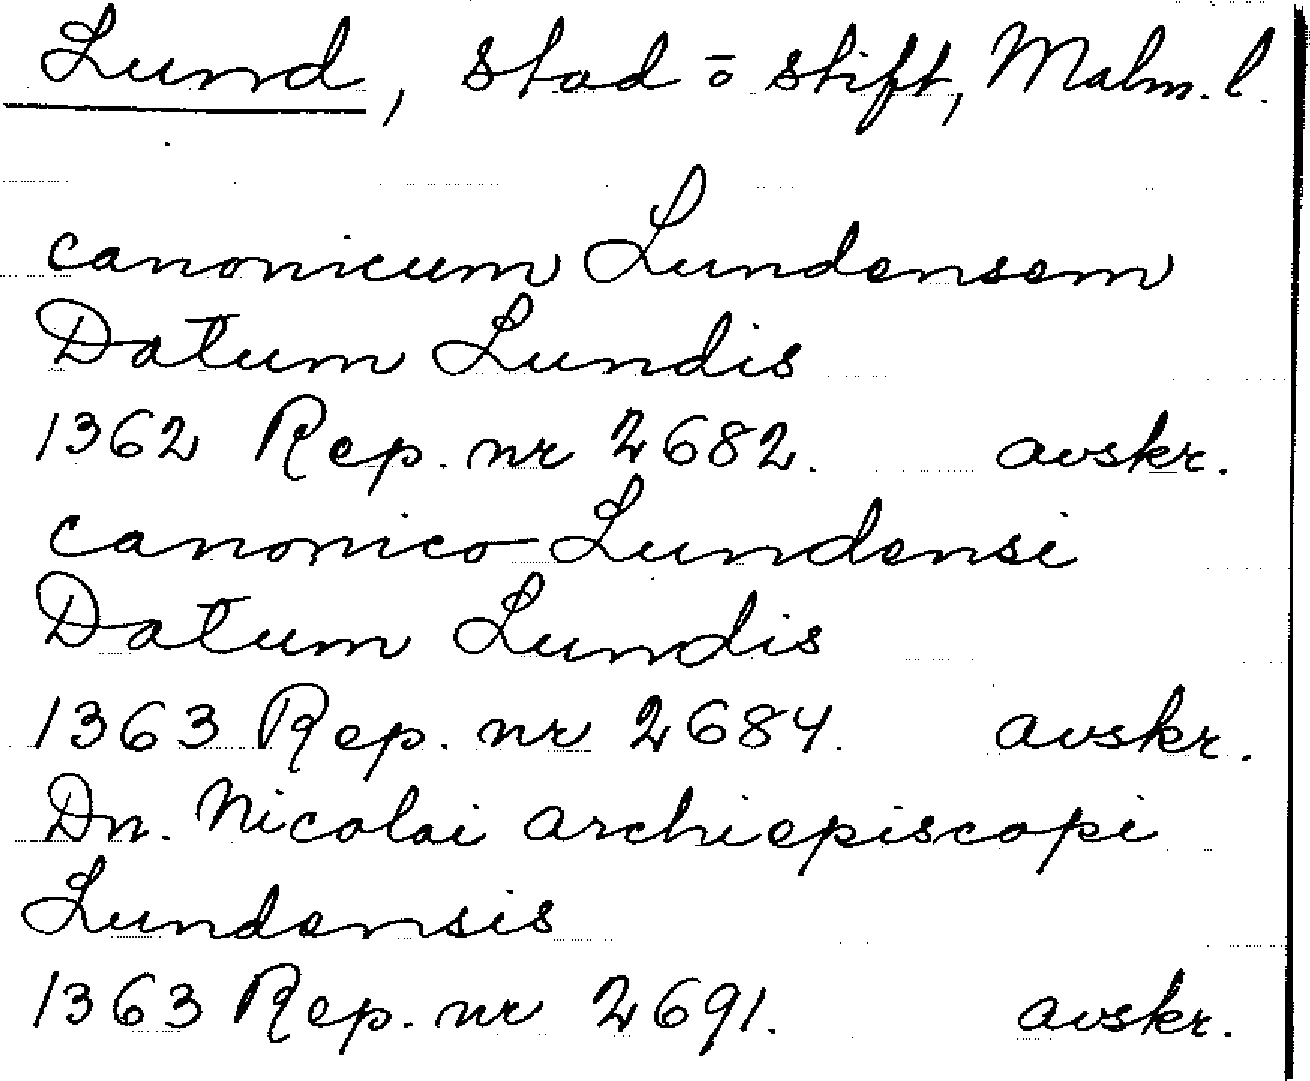 Lund, stad o stift, Malm. l.
canonicum Lundensem
Datum Lundis
1362 Rep. nr 2682. avskr.
canonico Lundensi
Datum Lundis
1363 Rep. nr 2684. avskr.
Dn. Nicolai archiepiscopi
Lundensis
1363 Rep. nr 2691. avskr.